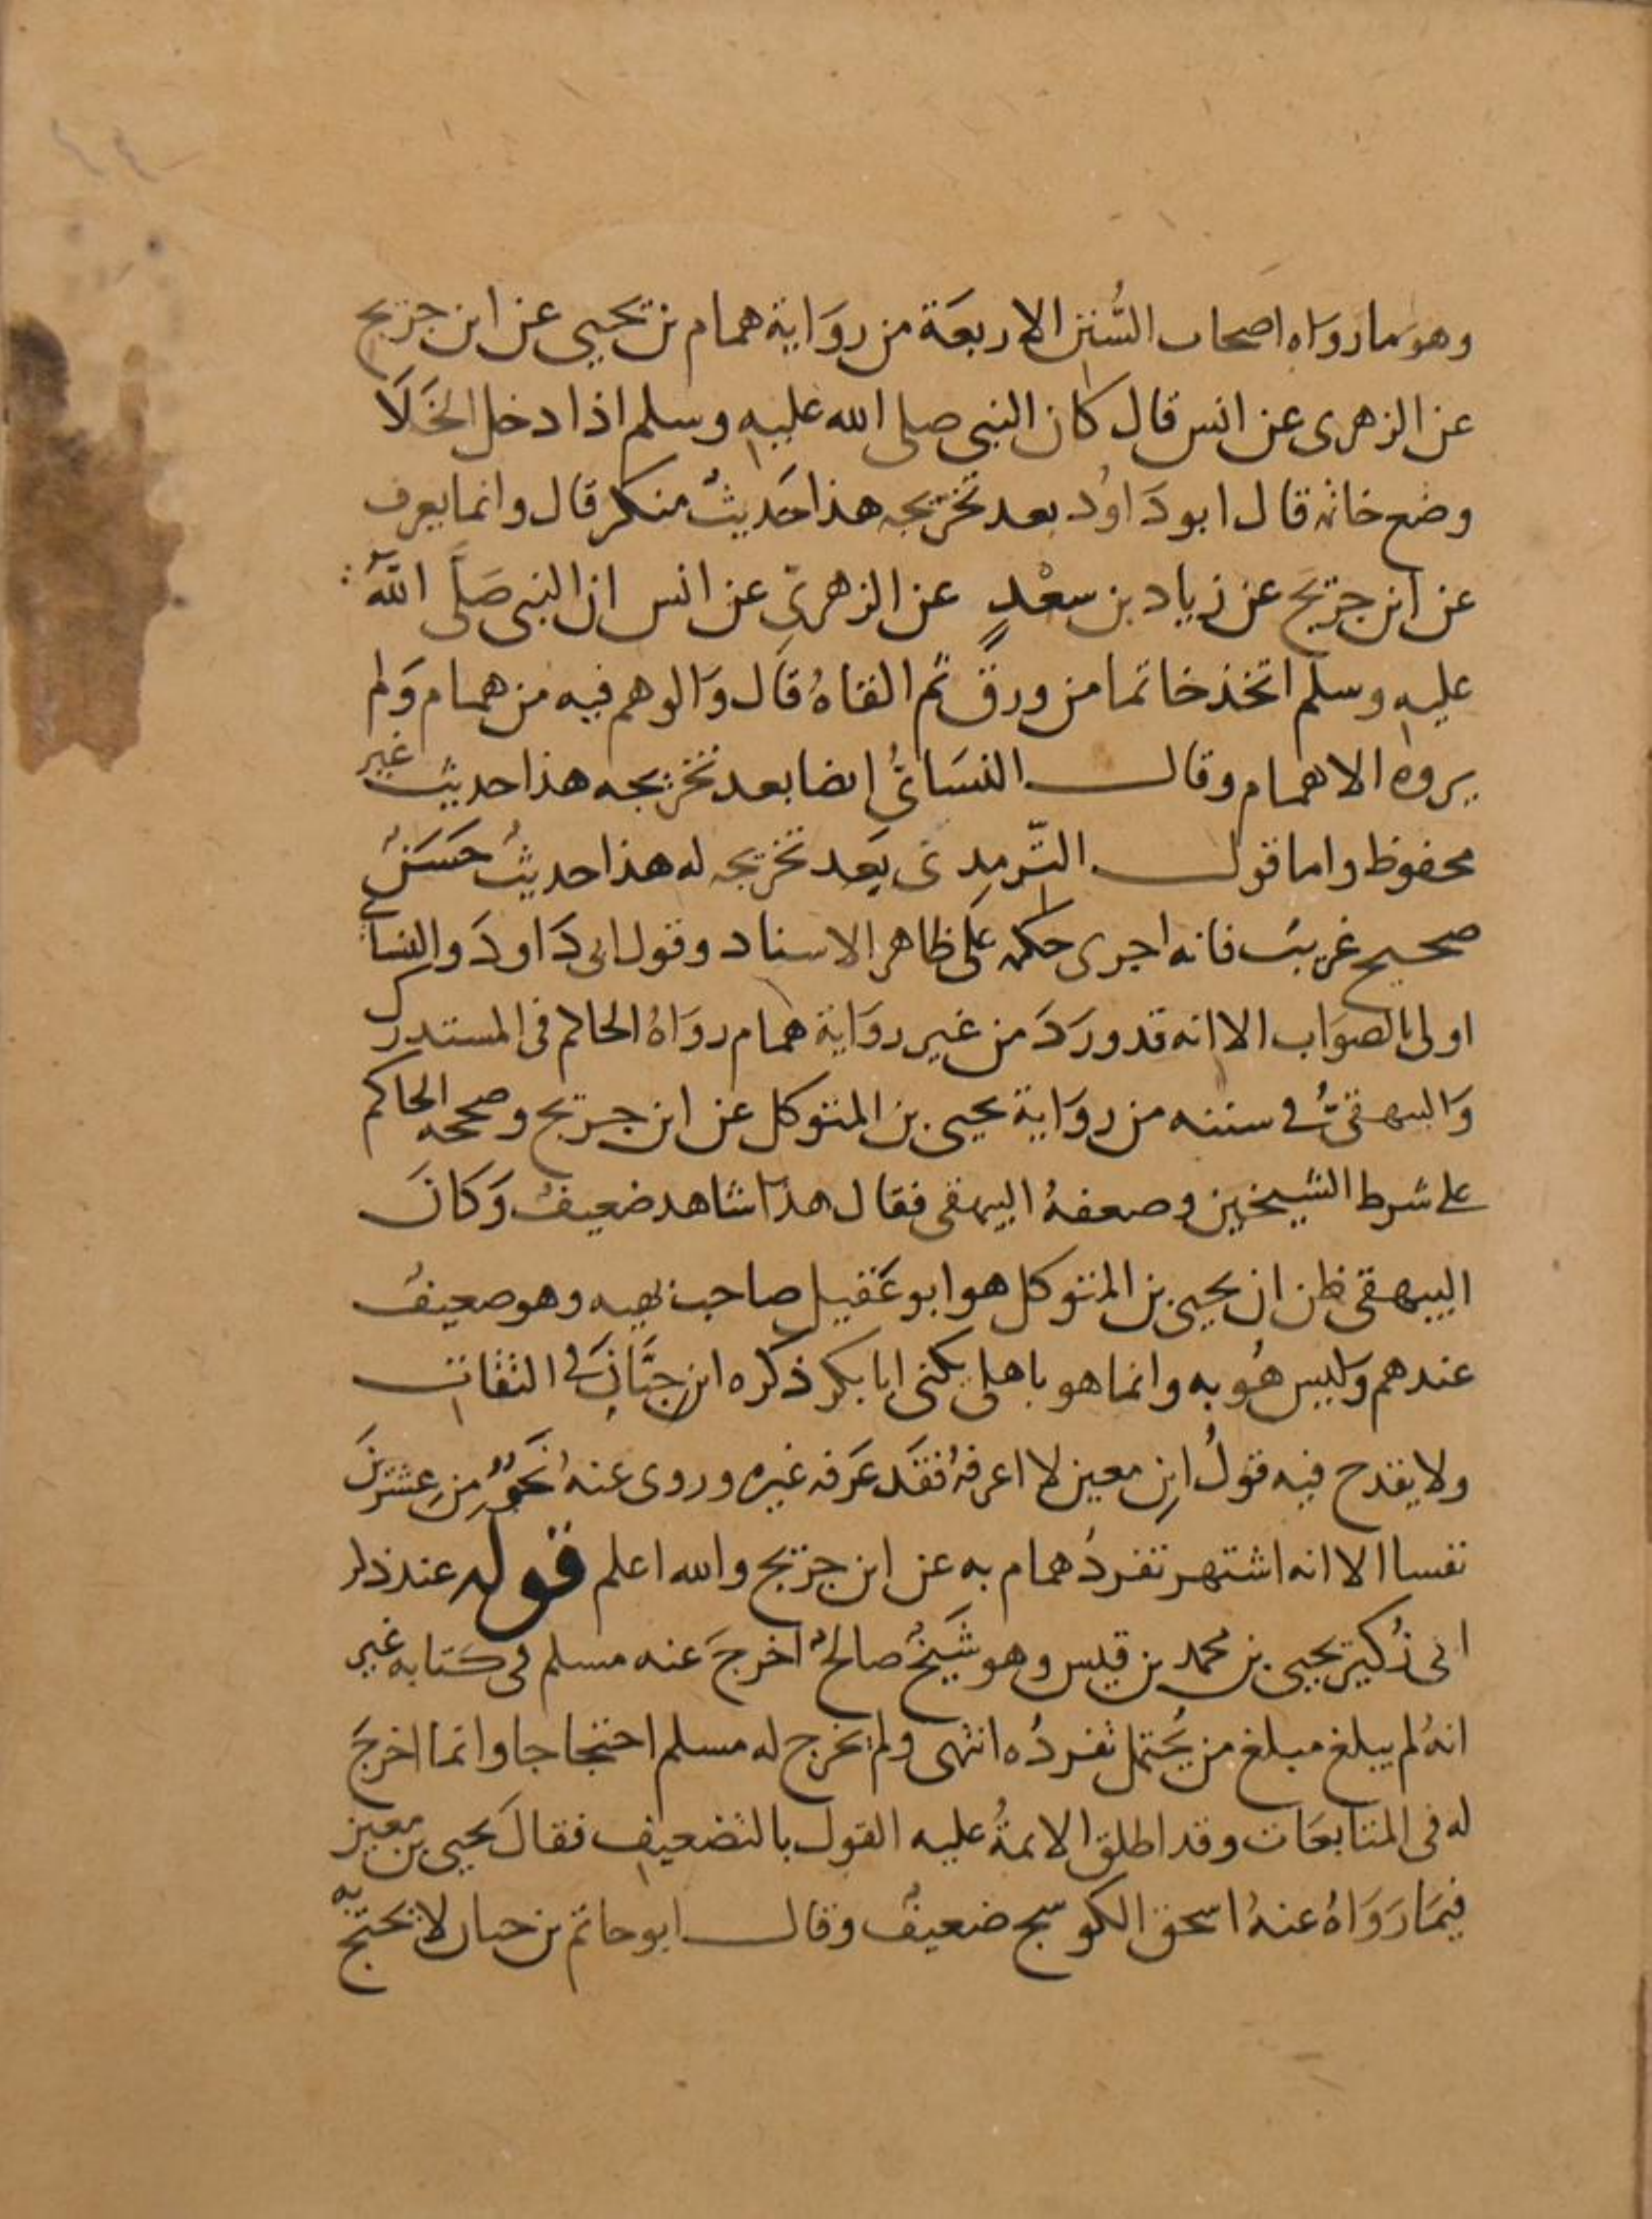 وهو ما رواه اصحاب السُّنن الاربعَة من روَاية همام بن يحيى عن ابن جريج
عن الزهرى عن انس قال كان النبى صلى الله عليه وسلم اذا دخل الخَلَا
وضع خاتمه قال ابو دَاوُد بعد تخريجه هذا حَديثٌ منكر قال وانما يعرف
عن ابن جريج عن زياد بن سعْدٍ عن الزهرىِّ عن انس ان النبى صَلَّى اللهُ
عليه وسلم اتخذ خاتما من ورق ثم القاهُ قال وَالوهم فيه من همام وَلم
يروه الا همام وقال النسَائىُّ ايضا بعد تخريجه هذا حديث غير
محفوظ واما قول التّرمِدى بَعد تخريجه له هذا حديثٌ حَسَنٌ
صحيح غريبٌ فانه اجرى حكمه عَلى ظاهر الاسناد وقول ابى دَاودَ والنسائى
اولى بالصوَاب الا انه قد ورَدَ من غير روَاية همام روَاهُ الحاكم فى المستدرك
وَالبيهقىُّ فى سننه من روَاية يحيى بن المتوكل عن ابن جريج وصححه الحاكم
على شرط الشيخين وضعفهُ البيهقى فقال هذا شاهد ضعيفٌ وَكانَ
البيهقى ظن ان يحيى بن المتوكل هو ابو عَقيل صاحب بهيه وهو ضعيفٌ
عندهم وَليس هُو به وانما هو باهلى يكنى ابا بكر ذكره ابن حِبَّانَ فى الثقات
ولا يقدح فيه قولُ ابن معين لا اعرفهُ فقَد عَرَفه غيره وروى عنهُ نَحوٌ مِن عِشرينَ
نفسا الا انه اشتهر تفردُ همام به عن ابن جريج والله اعلم قوله عند ذكر
ابى زُكير يحيى بن محمد بن قيس وهو شَيخٌ صالحٌ اخرجَ عنه مسلم فى كتابه غير
انهُ لم يبلغ مبلغ من يُحتمل تفردُه انتهى ولم يخرج له مسلم احتجاجا وانما اخرجَ
له فى المتابعَات وقد اطلق الائمةُ عليه القول بالتضعيف فقالَ يحيى بن معين
فيمَا رَوَاهُ عنهُ اسحق الكوسج ضعيفٌ وقال ابو حاتم بن حبان لا يحتجّ به